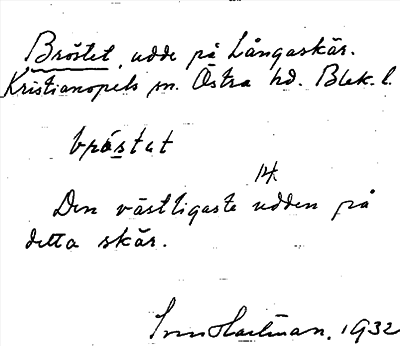 Bröstet, udde på Långaskär.
Kristianopels sn. Östra hd. Blek. l.
bröstat
14.
Den västligaste udden på
detta skär.
Hartman. 1932